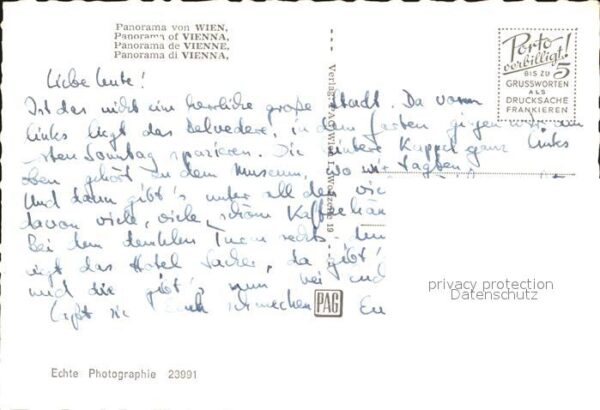 Panorama von WIEN,
Panorama of VIENNA,
Panorama de VIENNE,
Panorama di VIENNA,
Porto
verbilligt!
BIS ZU 5
GRUSSWORTEN
ALS
DRUCKSACHE
FRANKIEREN
Liebe Leute!
Ist das nicht eine herrliche große Stadt. Da vorn
links liegt das Belvedere, in dem Garten gingen wir am
ersten Sonntag spazieren. Die hintere Kuppel ganz links
oben gehört zu dem Museum, wo wir tagten.
Und dann gibt's unter all den
davon viele, viele, schöne Kaffeehäu
Bei dem dunklen Turm rechts
das Hotel Sacher, da gibt's
und die gibt's nun bei
Euch schmecken
Verlag PAG Wien I., Wollzeile 19
PAG
privacy protection
Datenschutz
Echte Photographie 23991